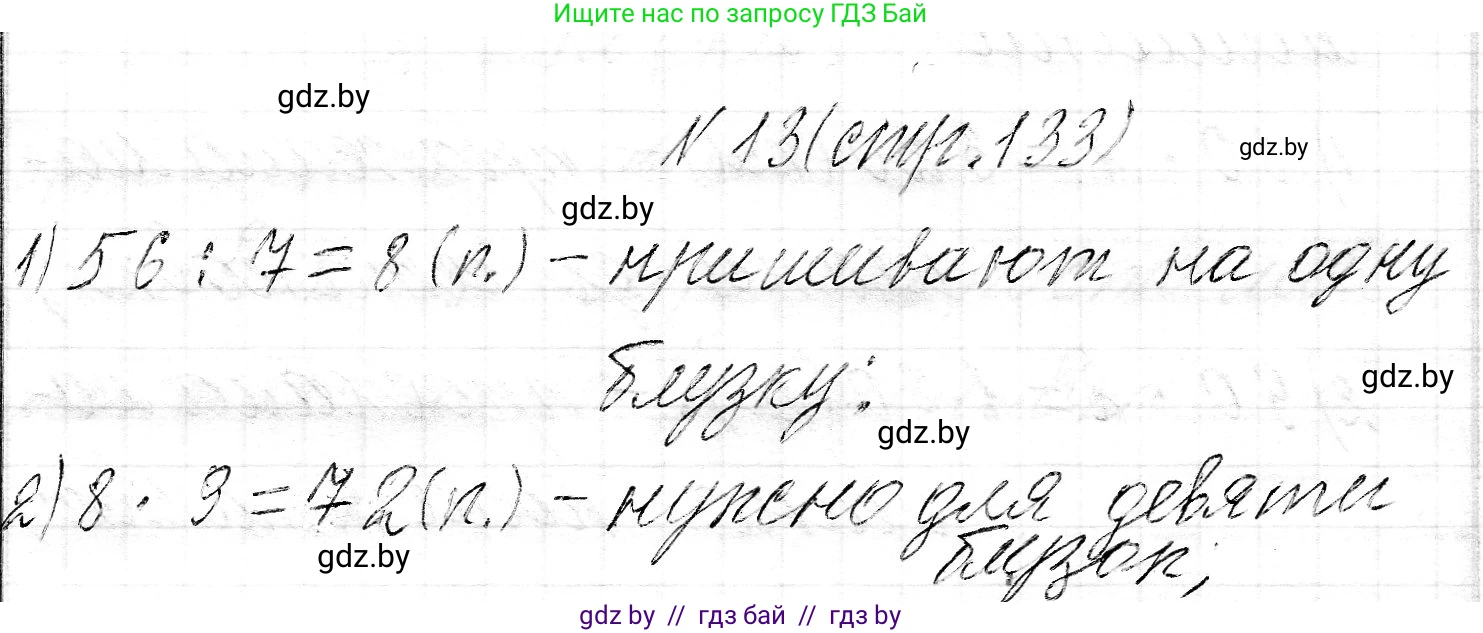 Ищите нас по запросу ГДЗ Бай
gdz.by
N 13(стр.133)
gdz.by
gdz.by
1) 56 : 7 = 8 (п.) – пришивают на одну
блузку;
gdz.by
gdz.by
2) 8 · 9 = 72 (п.) – нужно для девяти
gdz.by
блузок;
gdz.by // гдз бай // гдз by